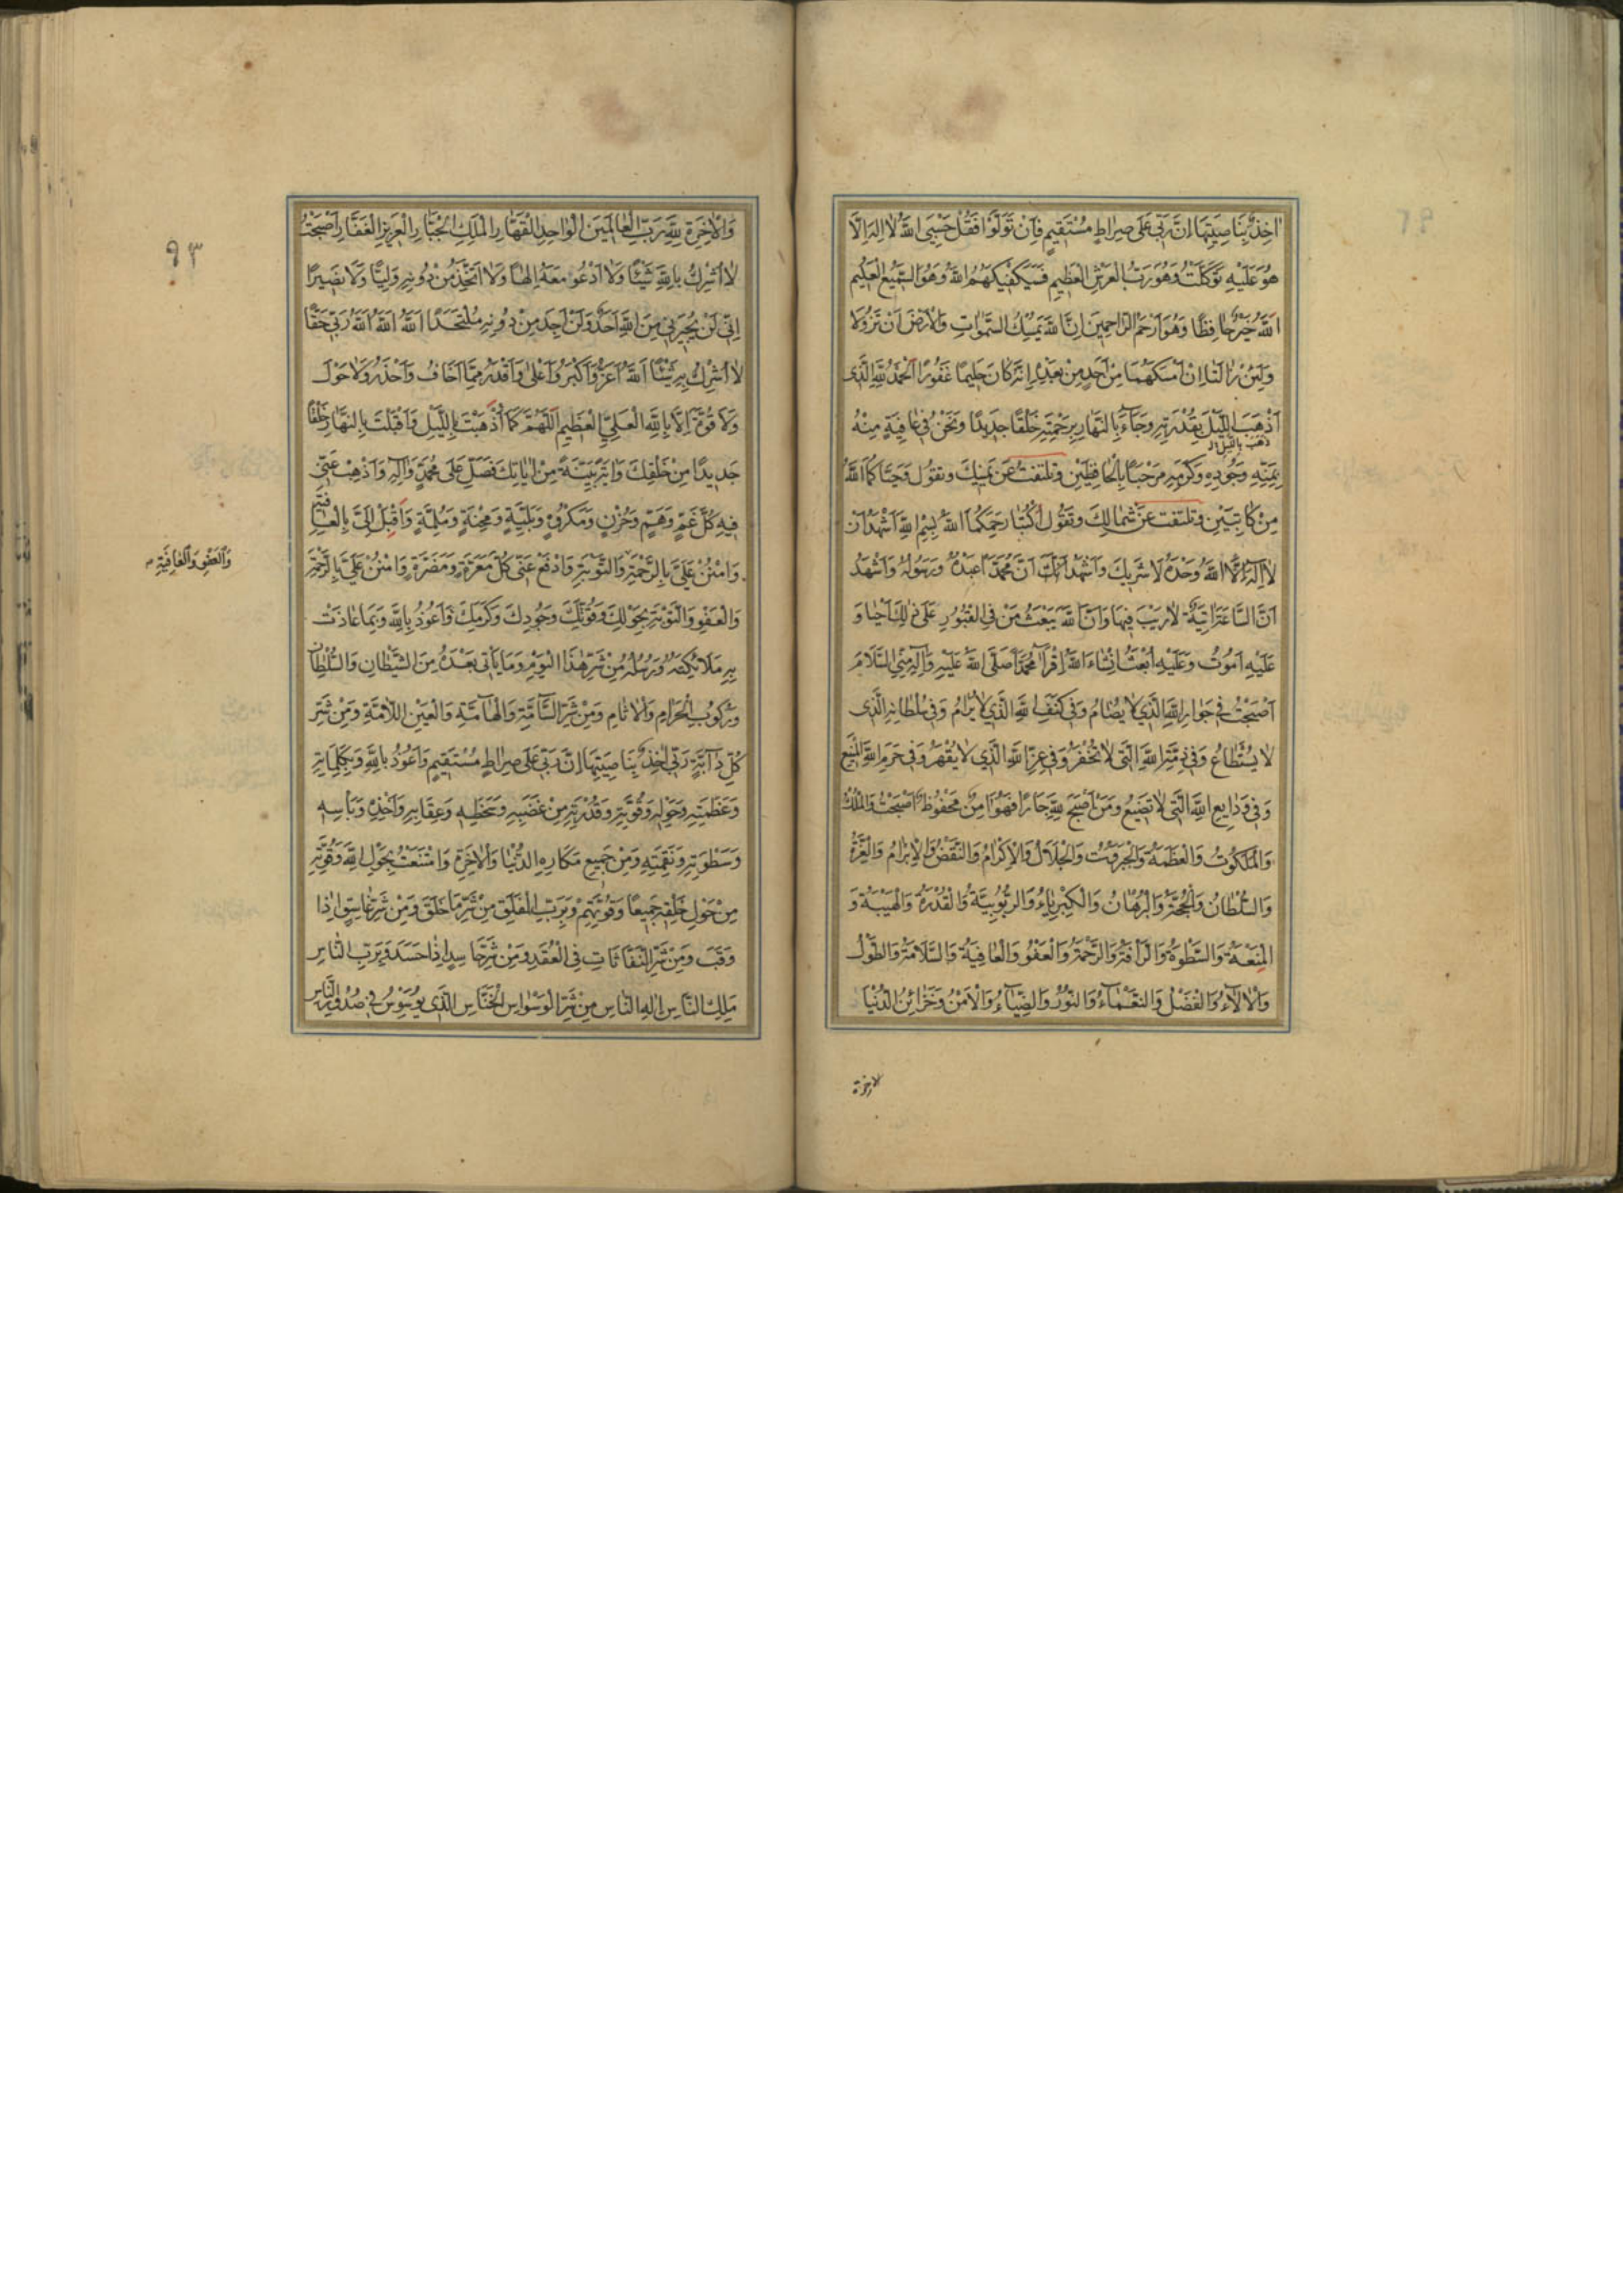 اٰخِذٌ بِنَاصِيَتِهَا اِنَّ رَبّي عَلىٰ صِرٰاطٍ مُسْتَقيمٍ فَاِنْ تَوَلَّوْا فَقُلْ حَسْبِيَ اللّٰهُ لاٰ اِلٰهَ اِلاَّ
هُوَ عَلَيْهِ تَوَكَّلْتُ وَهُوَ رَبُّ الْعَرْشِ الْعَظيمِ فَسَيَكْفيكَهُمُ اللّٰهُ وَهُوَ السَّميعُ الْعَليمُ
اَللّٰهُ خَيْرٌ حٰافِظًا وَهُوَ اَرْحَمُ الرّٰاحِمينَ اِنَّ اللّٰهَ يُمْسِكُ السَّمٰوٰاتِ وَالْاَرْضَ اَنْ تَزُولاٰ
وَلَئِنْ زٰالَتٰا اِنْ اَمْسَكَهُمٰا مِنْ اَحَدٍ مِنْ بَعْدِهِ اِنَّهُ كٰانَ حَليمًا غَفُورًا اَلْحَمْدُ لِلّٰهِ الَّذى
اَذْهَبَ اللَّيْلَ بِقُدْرَتِهِ وَجٰاءَ بِالنَّهٰارِ بِرَحْمَتِهِ خَلْقًا جَديدًا وَنَحْنُ فى عٰافِيَةٍ مِنْهُ
ذهب بالليل
بِمَنِّهِ وَجُودِهِ وَكَرَمِهِ مَرْحَبًا بِالْحٰافِظَيْنِ وتلتفت عَنْ يَمينِكَ وتقول وَحَيّٰاكُمَا اللّٰهُ
مِنْ كٰاتِبَيْنِ وتلتفت عَنْ شِمٰالِكَ وتَقُولُ اُكْتُبٰا رَحِمَكُمَا اللّٰهُ بِسْمِ اللّٰهِ اَشْهَدُ اَنْ
لاٰ اِلٰهَ اِلاَّ اللّٰهُ وَحْدَهُ لاٰ شَريكَ وَاَشْهَدُ اَنَّ مُحَمَّدًا عَبْدُهُ وَرَسُولُهُ وَاَشْهَدُ
اَنَّ السّٰاعَةَ اٰتِيَةٌ لاٰ رَيْبَ فيهٰا وَاَنَّ اللّٰهَ يَبْعَثُ مَنْ فِي الْقُبُورِ عَلىٰ ذٰلِكَ اَحْيٰا وَ
عَلَيْهِ اَمُوتُ وَعَلَيْهِ اُبْعَثُ اِنْشٰاءَ اللّٰهُ اِقْرَاٰ مُحَمَّدًا صَلَّى اللّٰهُ عَلَيْهِ وَاٰلِهِ مِنِّي السَّلاٰمَ
اَصْبَحْتُ في جِوٰارِ اللّٰهِ الَّذي لاٰ يُضٰامُ وَفي كَنَفِ اللّٰهِ الَّذي لاٰ يُرٰامُ وَفي سُلْطٰانِهِ الَّذى
لاٰ يُسْتَطٰاعُ وَفى ذِمَّةِ اللّٰهِ الَّتى لاٰ تُخْفَرُ وَفى عِزِّ اللّٰهِ الَّذي لاٰ يُقْهَرُ وَفي حَرَمِ اللّٰهِ الْمَنيعِ
وَفي وَدٰايِعِ اللّٰهِ الَّتى لاٰ تَضيعُ وَمَنْ اَصْبَحَ لِلّٰهِ جٰارًا فَهُوَ اٰمِنٌ مَحْفُوظٌ اَصْبَحْتُ وَالْمُلْكُ
وَالْمَلَكُوتُ وَالْعَظَمَةُ وَالْجَبَرُوتُ وَالْجَلاٰلُ وَالْاِكْرٰامُ وَالنَّقْضُ وَالْاِبْرٰامُ وَالْعِزَّةُ
وَالسُّلْطٰانُ وَالْحُجَّةُ وَالْبُرْهٰانُ وَالْكِبْرِيٰاءُ وَالرُّبُوبِيَّةُ وَالْقُدْرَةُ وَالْهَيْبَةُ وَ
الْمَنَعَةُ وَالسَّطْوَةُ وَالرَّاْفَةُ وَالرَّحْمَةُ وَالْعَفْوُ وَالْعٰافِيَةُ وَالسَّلاٰمَةُ وَالطَّوْلُ
وَالْاٰلاٰءُ وَالْفَضْلُ وَالنَّعْمٰاءُ وَالنُّورُ وَالضِّيٰاءُ وَالْاَمْنُ وَخَزٰائِنُ الدُّنْيٰا
الاخرة
وَالْاٰخِرَةِ لِلّٰهِ رَبِّ الْعٰالَمينَ الْوٰاحِدِ الْقَهّٰارِ الْمَلِكِ الْجَبّٰارِ الْعَزيزِ الْغَفّٰارِ اَصْبَحْتُ
لاٰ اُشْرِكُ بِاللّٰهِ شَيْئًا وَلاٰ اَدْعُو مَعَهُ اِلٰهًا وَلاٰ اَتَّخِذُ مِنْ دُونِهِ وَلِيًّا وَلاٰ نَصيرًا
اِنّي لَنْ يُجيرَني مِنَ اللّٰهِ اَحَدٌ وَلَنْ اَجِدَ مِنْ دُونِهِ مُلْتَحَدًا اَللّٰهُ اَللّٰهُ اَللّٰهُ رَبّي حَقًّا
لاٰ اُشْرِكُ بِهِ شَيْئًا اَللّٰهُ اَعَزُّ وَاَكْبَرُ وَاَعْلىٰ وَاَقْدَرُ مِمّٰا اَخٰافُ وَاَحْذَرُ وَلاٰ حَوْلَ
وَلاٰ قُوَّةَ اِلاَّ بِاللّٰهِ الْعَلِيِّ الْعَظيمِ اَللّٰهُمَّ كَمٰا اَذْهَبْتَ بِاللَّيْلِ وَاَقْبَلْتَ بِالنَّهٰارِ خَلْقًا
جَديدًا مِنْ خَلْقِكَ وَاٰيَةً بَيِّنَةً مِنْ اٰيٰاتِكَ فَصَلِّ عَلىٰ مُحَمَّدٍ وَاٰلِهِ وَاَذْهِبْ عَنّي
فيهِ كُلَّ غَمٍّ وَهَمٍّ وَحُزْنٍ وَمَكْرُوهٍ وَبَلِيَّةٍ وَمِحْنَةٍ وَمُلِمَّةٍ وَاَقْبِلْ اِلَيَّ بِالْعٰافِيَةِ
وَامْنُنْ عَلَيَّ بِالرَّحْمَةِ وَالتَّوْبَةِ وَادْفَعْ عَنّى كُلَّ مَعَرَّةٍ وَمَضَرَّةٍ وَامْنُنْ عَلَيَّ بِالرَّحْمَةِ
وَالْعَفْوِ وَالتَّوْبَةِ بِحَوْلِكَ وَقُوَّتِكَ وَجُودِكَ وَكَرَمِكَ وَاَعُوذُ بِاللّٰهِ وَبِمٰا عٰاذَتْ
بِهِ مَلاٰئِكَتُهُ وَرُسُلُهُ مِنْ شَرِّ هٰذَا الْيَوْمِ وَمٰا يَاْتى بَعْدَهُ مِنَ الشَّيْطٰانِ وَالسُّلْطٰانِ
وَرُكُوبِ الْحَرٰامِ وَالْاٰثٰامِ وَمِنْ شَرِّ السّٰامَّةِ وَالْهٰامَّةِ وَالْعَيْنِ اللاّٰمَّةِ وَمِنْ شَرِّ
كُلِّ دٰابَّةٍ رَبّى اٰخِذٌ بِنٰاصِيَتِهٰا اِنَّ رَبّى عَلىٰ صِرٰاطٍ مُسْتَقيمٍ وَاَعُوذُ بِاللّٰهِ وَبِكَلِمٰاتِهِ
وَعَظَمَتِهِ وَحَوْلِهِ وَقُوَّتِهِ وَقُدْرَتِهِ مِنْ غَضَبِهِ وَسَخَطِهِ وَعِقٰابِهِ وَاَخْذِهِ وَبَاْسِهِ
وَسَطْوَتِهِ وَنَقِمَتِهِ وَمِنْ جَميعِ مَكٰارِهِ الدُّنْيٰا وَالْاٰخِرَةِ وَامْتَنَعْتُ بِحَوْلِ اللّٰهِ وَقُوَّتِهِ
مِنْ حَوْلِ خَلْقِهِ جَميعًا وَقُوَّتِهِمْ وَبِرَبِّ الْفَلَقِ مِنْ شَرِّ مٰا خَلَقَ وَمِنْ شَرِّ غٰاسِقٍ اِذٰا
وَقَبَ وَمِنْ شَرِّ النَّفّٰاثٰاتِ فِى الْعُقَدِ وَمِنْ شَرِّ حٰاسِدٍ اِذٰا حَسَدَ وَبِرَبِّ النّٰاسِ
مَلِكِ النّٰاسِ اِلٰهِ النّٰاسِ مِنْ شَرِّ الْوَسْوٰاسِ الْخَنّٰاسِ الَّذى يُوَسْوِسُ في صُدُورِ النّٰاسِ
٩٣
وَالْعَفْوِ وَالْعٰافِيَةِ